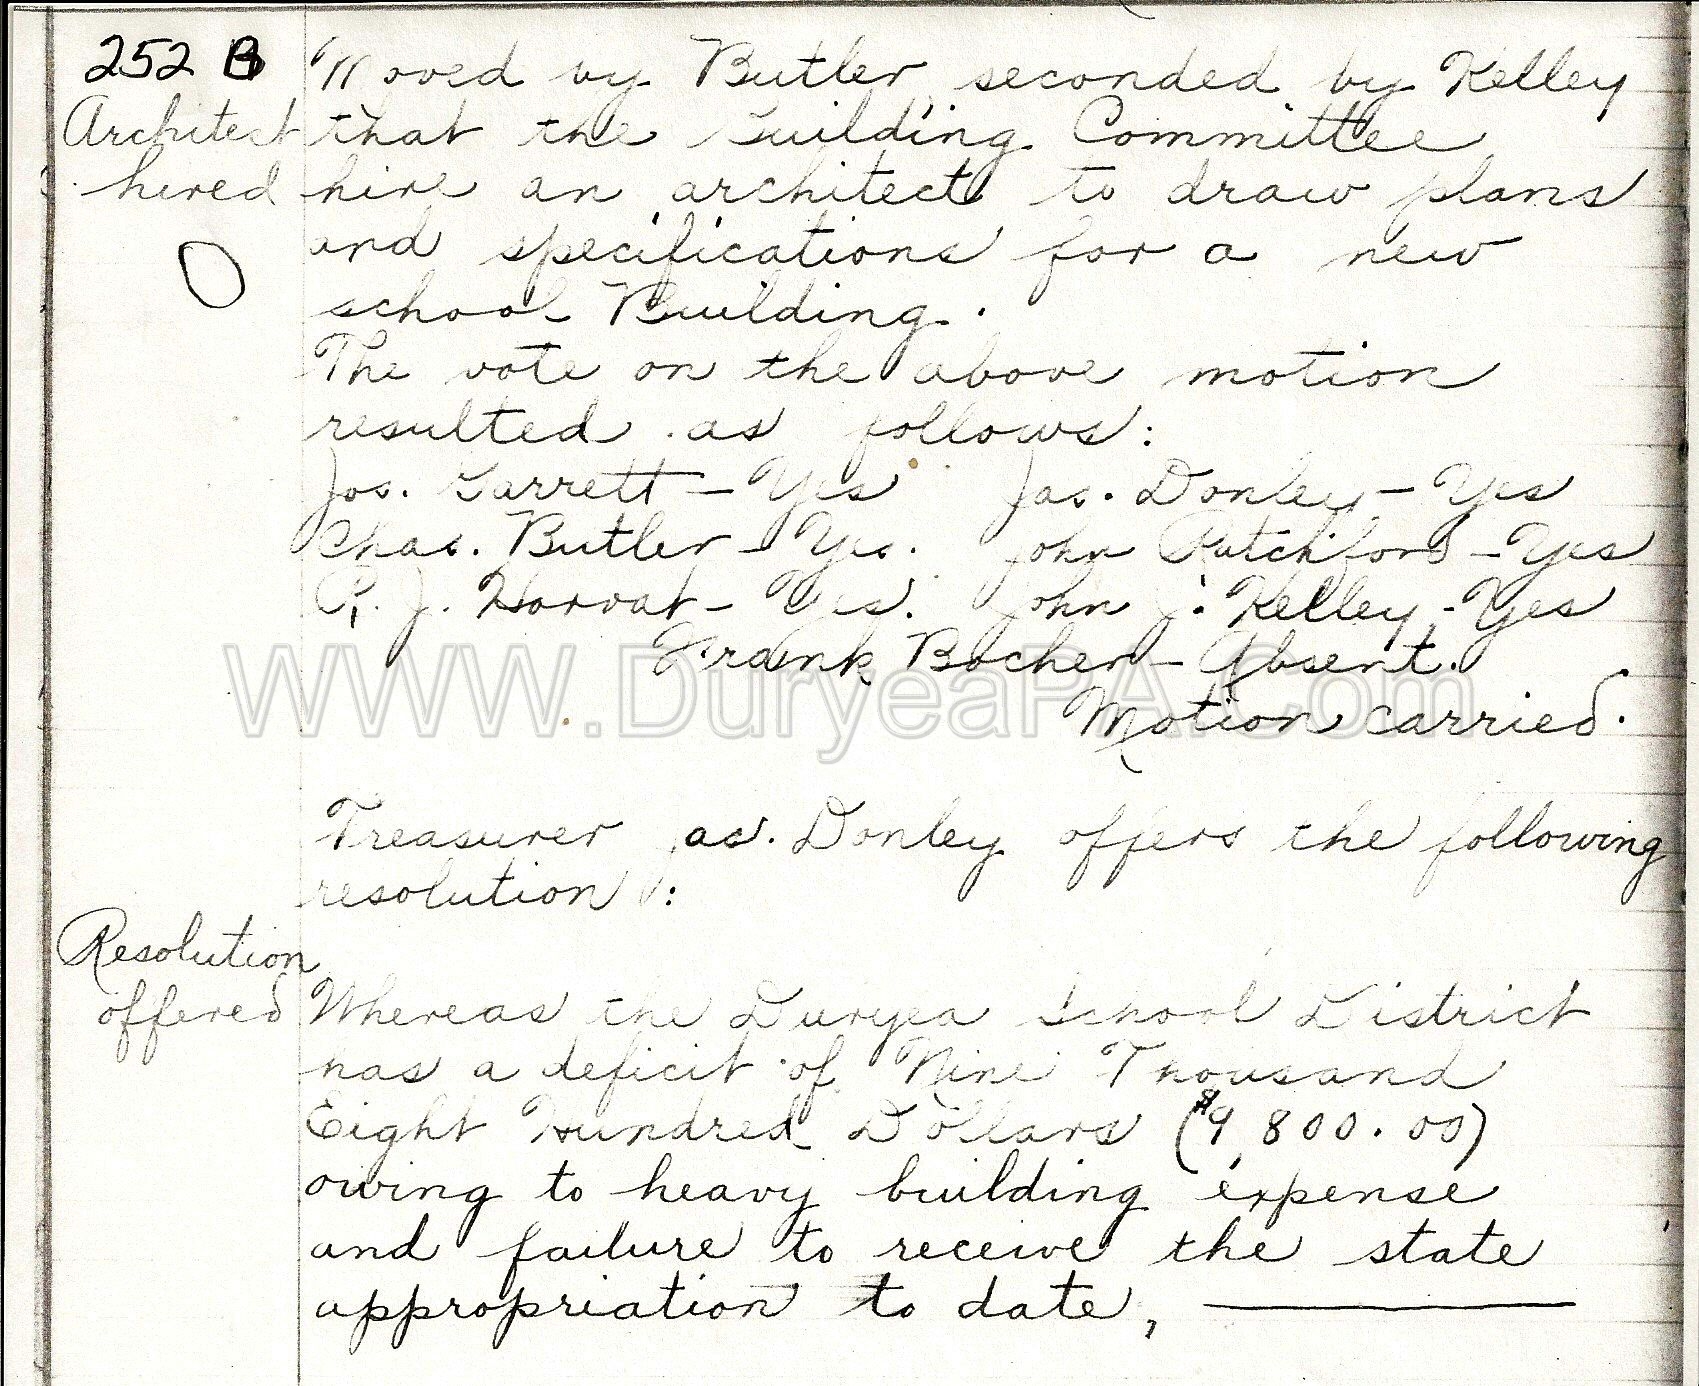 252 B
Moved by Butler seconded by Kelley
Architect
that the Building Committee
hired
hire an architect to draw plans
and specifications for a new
school Building.
The vote on the above motion
resulted as follows:
Jos. Garrett - Yes Jas. Donley - Yes
Chas. Butler - Yes. John Patchford - Yes
P. J. Horvat - Yes. John J. Kelley - Yes
Frank Bocher - Absent.
Motion carried.
WWW.DuryeaPA.Com
Treasurer Jas. Donley offers the following
resolution:
Resolution
offered
Whereas the Duryea School District
has a deficit of Nine Thousand
Eight Hundred Dollars ($9,800.00)
owing to heavy building expense
and failure to receive the state
appropriation to date,